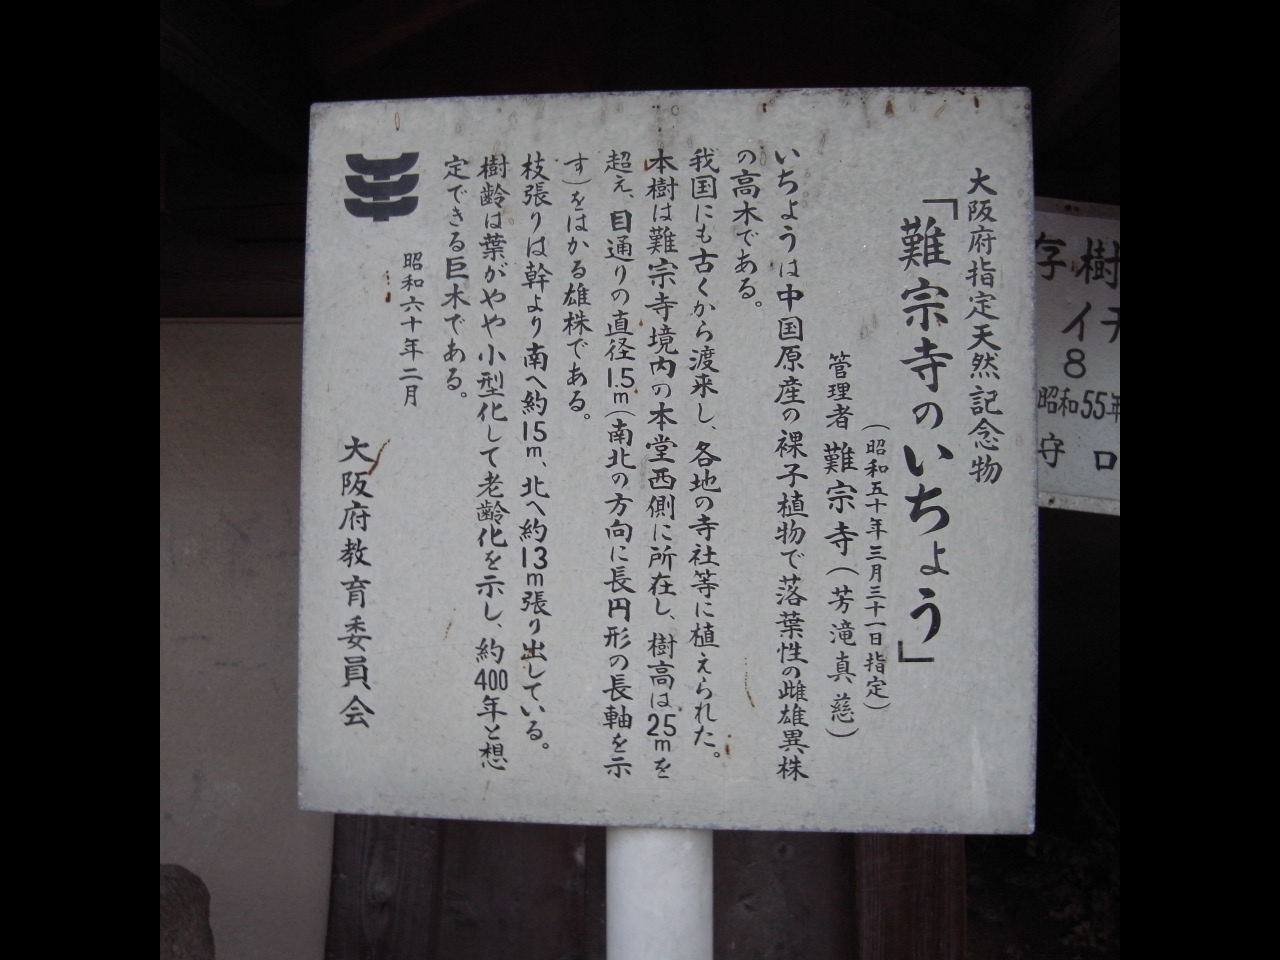 大阪府指定天然記念物
「難宗寺のいちょう」
(昭和五十年三月三十一日指定)
管理者 難宗寺(芳滝真慈)
いちょうは中国原産の裸子植物で落葉性の雌雄異株
の高木である。
我国にも古くから渡来し、各地の寺社等に植えられた。
本樹は難宗寺境内の本堂西側に所在し、樹高は25mを
超え、目通りの直径1.5m(南北の方向に長円形の長軸を示
す)をはかる雄株である。
枝張りは幹より南へ約15m、北へ約13m張り出している。
樹齢は葉がやや小型化して老齢化を示し、約400年と想
定できる巨木である。
昭和六十年二月
大阪府教育委員会
存樹
イチ
8
昭和55年
守口